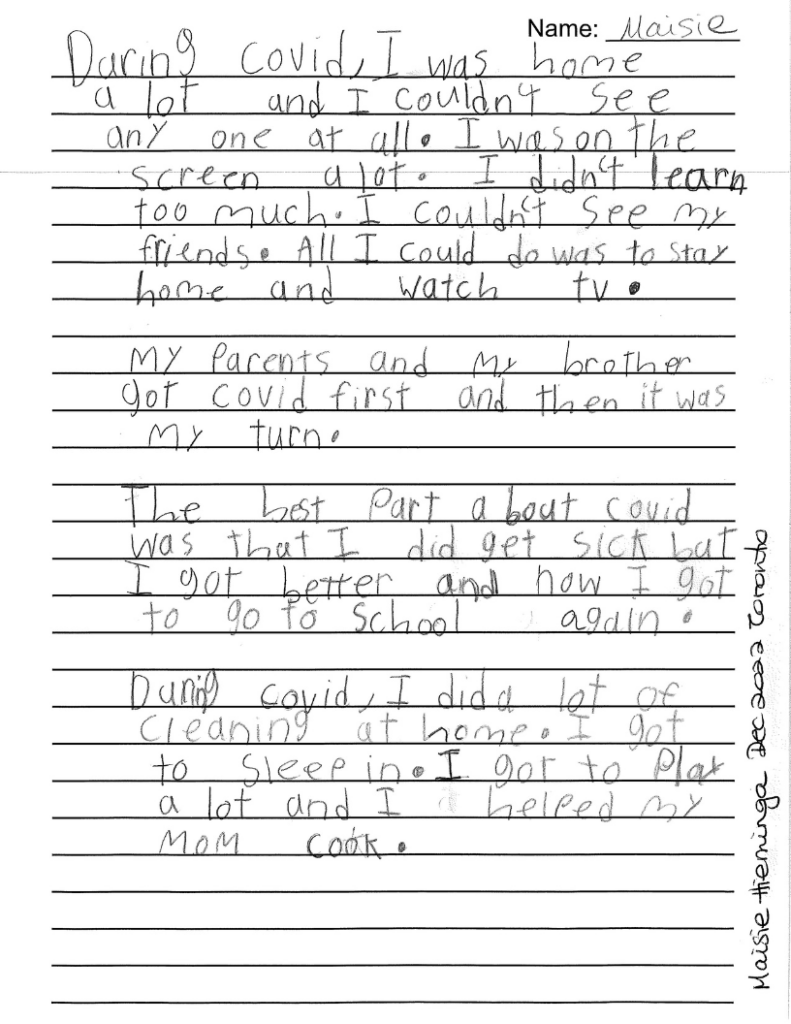 Name: Maisie
During covid, I was home
a lot and I couldn't see
any one at all. I was on the
screen a lot. I didn't learn
too much. I couldn't see my
friends. All I could do was to stay
home and watch tv.
My Parents and my brother
got covid first and then it was
my turn.
The best Part about covid
was that I did get sick but
I got better and now I got
to go to School again.
During covid, I did a lot of
cleaning at home. I got
to sleep in. I got to Play
a lot and I helped my
MOM cook.
Maisie Hieminga Dec 2022 Toronto